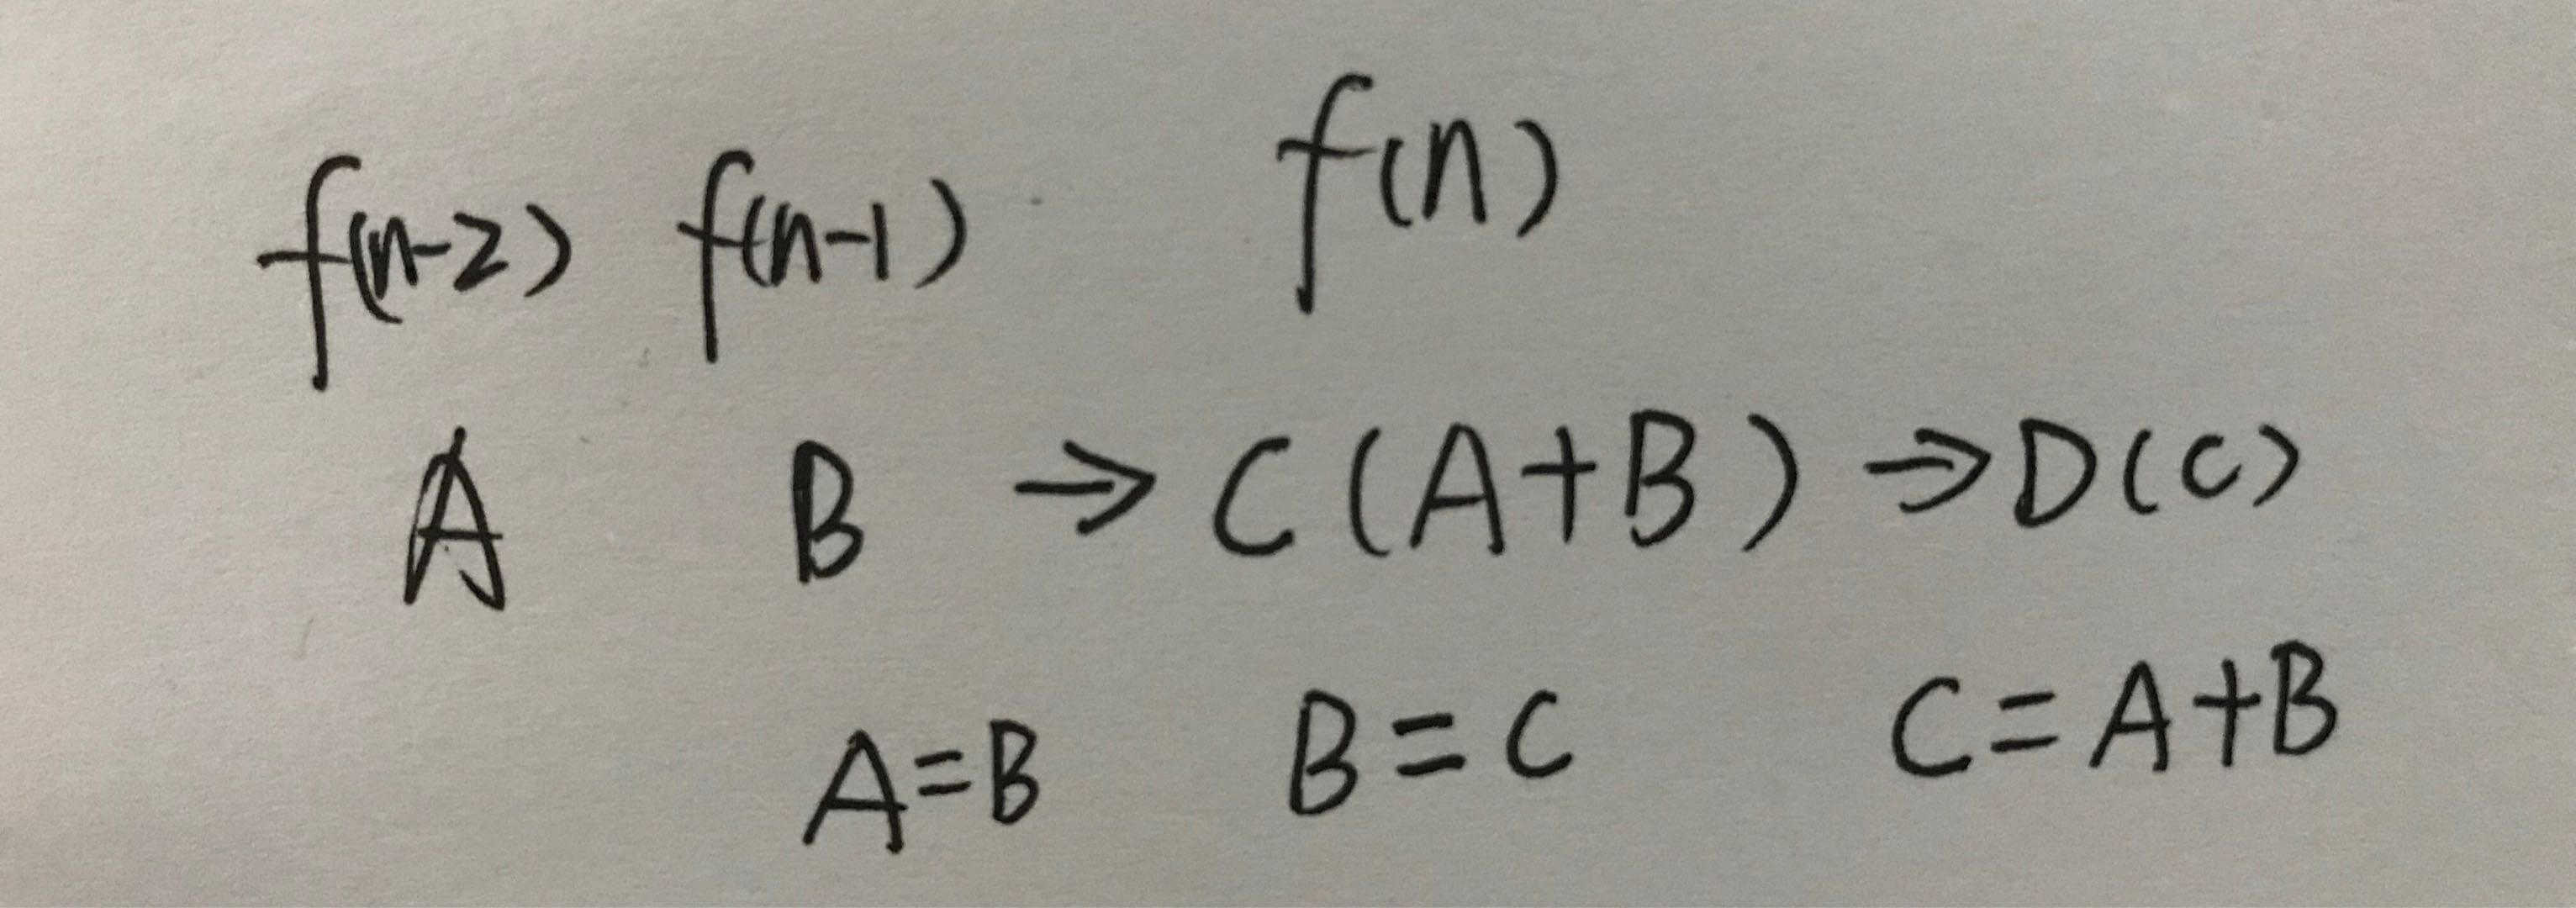 f(n-2) f(n-1) f(n)
A B → C(A+B) → D(C)
A=B B=C C=A+B